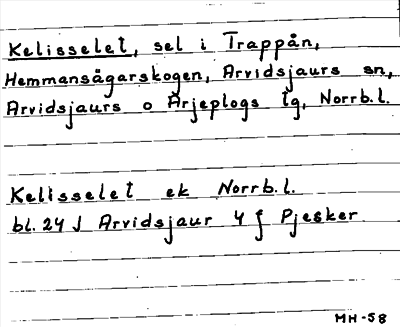 Kelisselet, sel i Trappån,
Hemmansägarskogen, Arvidsjaurs sn,
Arvidsjaurs o Arjeplogs tg, Norrb.l.
Kelisselet ek Norrb.l.
bl. 24 J Arvidsjaur 4 f Pjesker
MH-58